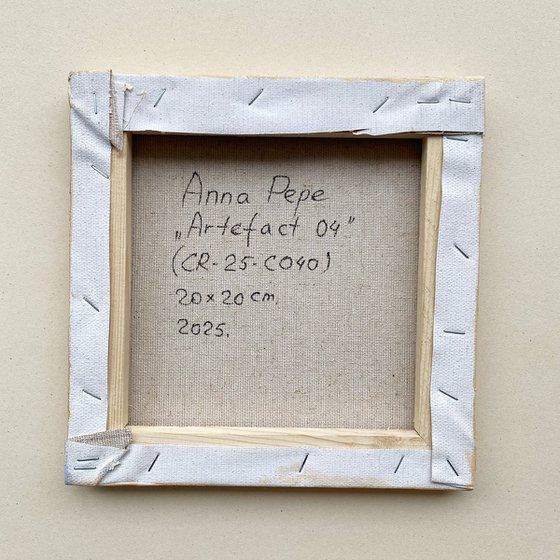 Anna Pepe
„Artefact 04"
(CR-25-C040)
20x20 cm.
2025.